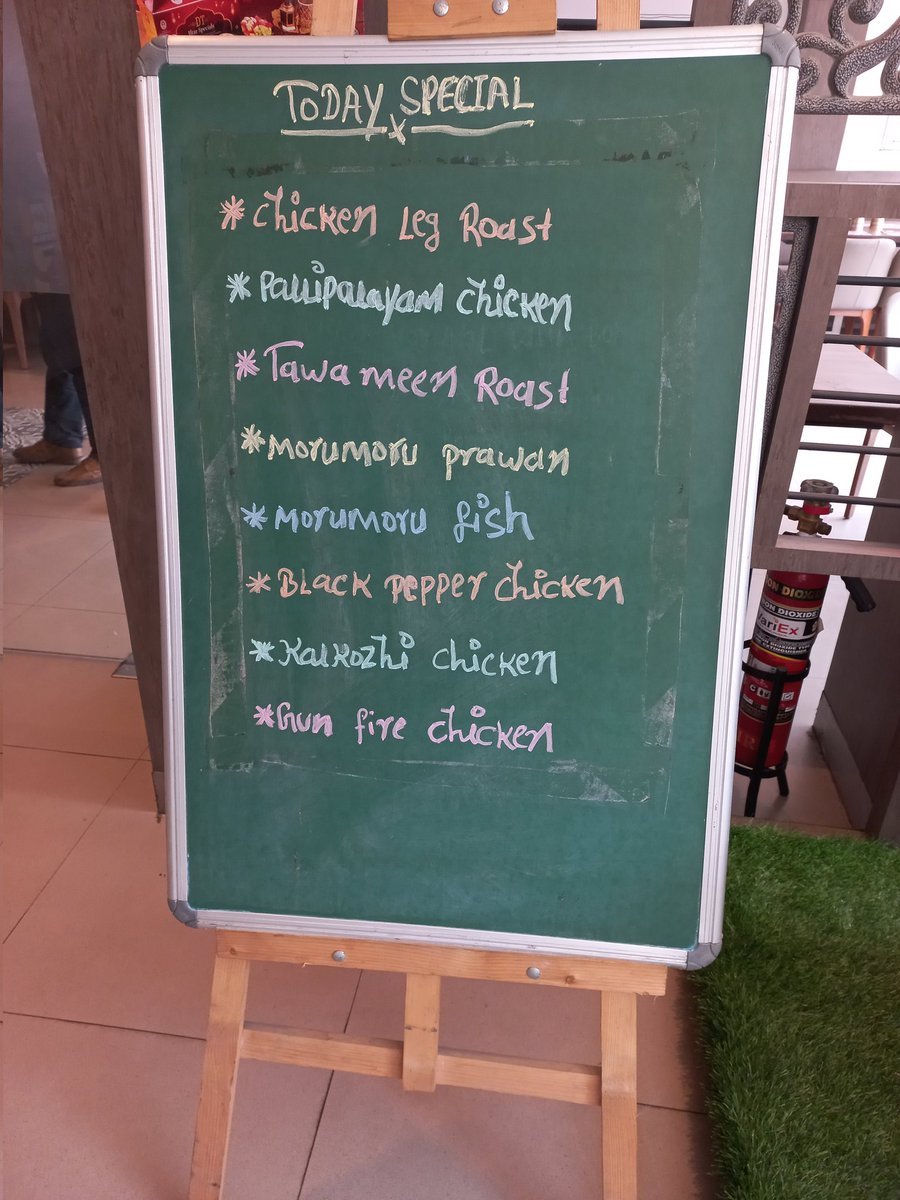 DT
TODAY SPECIAL
x
* Chicken Leg Roast
* Pallipalayam Chicken
* Tawa meen Roast
* morumoru prawan
* morumoru fish
* Black pepper chicken
* Kalkozhi chicken
* Gun fire chicken
VariEx